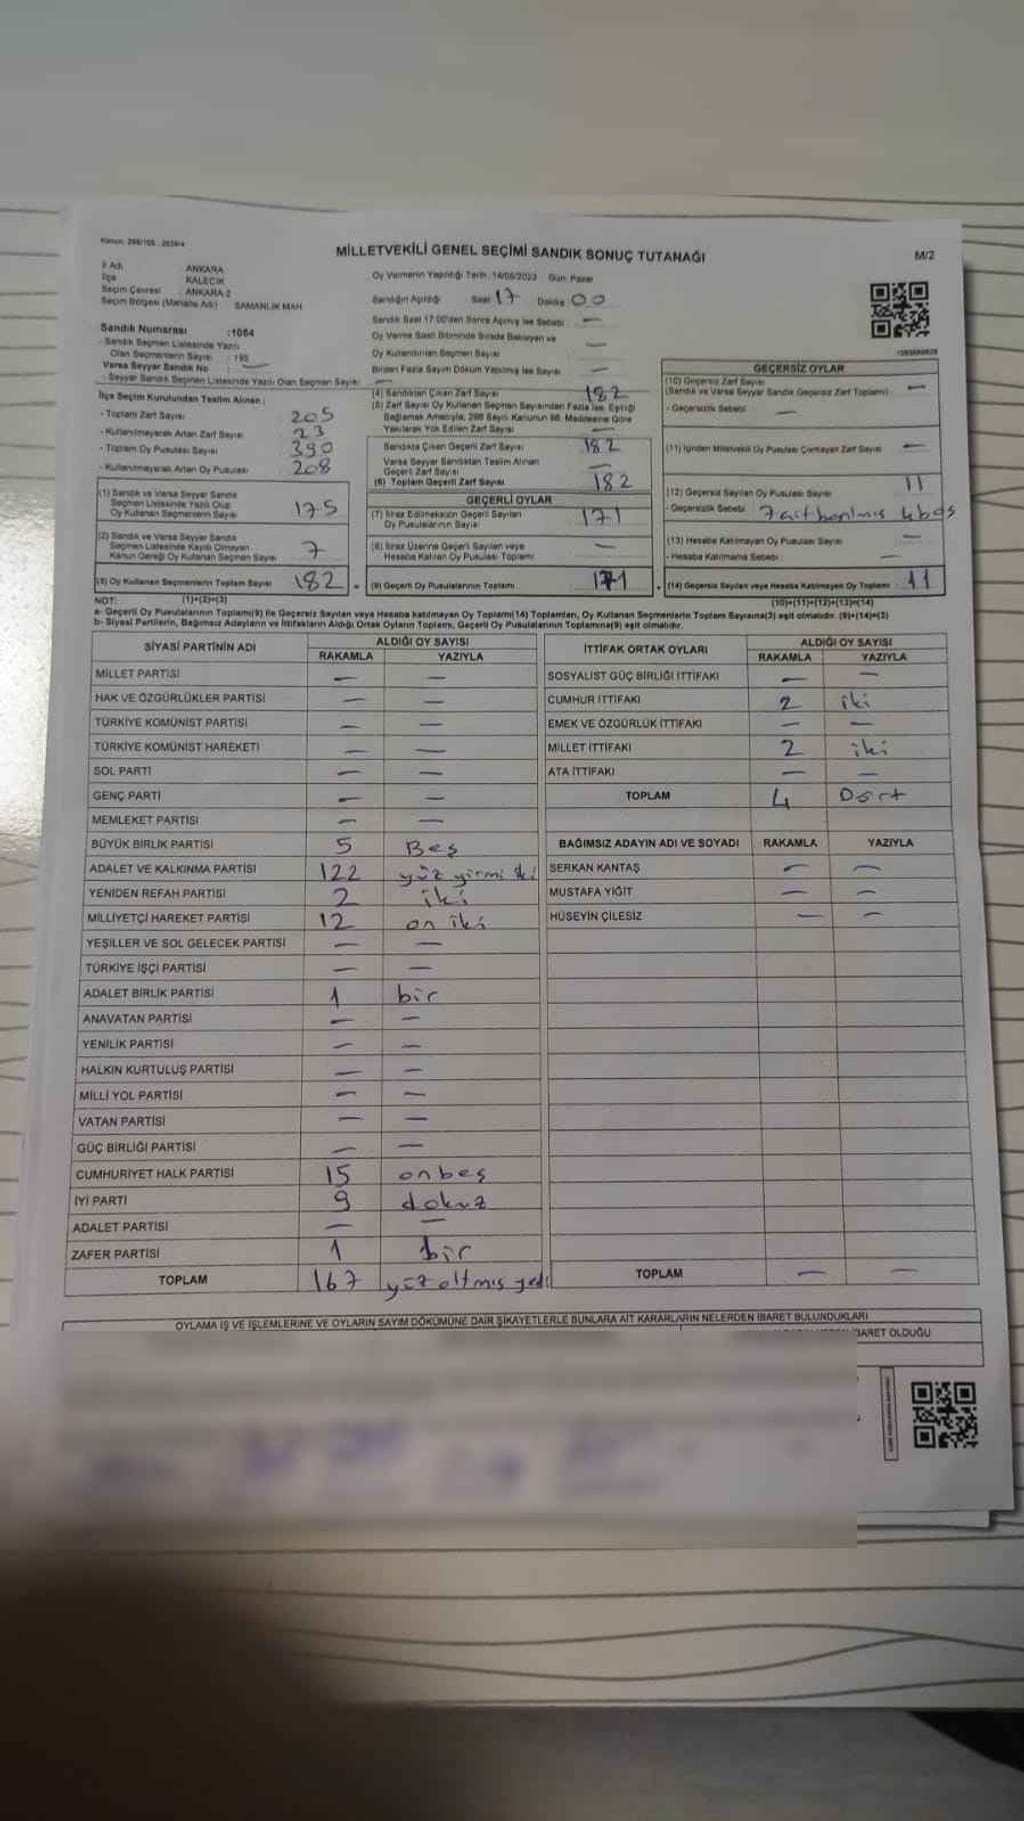 MİLLETVEKİLİ GENEL SEÇİMİ SANDIK SONUÇ TUTANAĞI
M/2
İl Adı ANKARA
İlçe KALECİK
Seçim Çevresi ANKARA 2
Seçim Bölgesi (Mahalle Adı) SAMANLIK MAH
Oy Vermenin Yapıldığı Tarih: 14/05/2023 Gün: Pazar
Sandığın Açıldığı Saat 17 Dakika 00
Sandık Saat 17:00'den Sonra Açılmış İse Sebebi: —
Sandık Numarası :1064
- Sandık Seçmen Listesinde Yazılı
Olan Seçmenlerin Sayısı : 195
Varsa Seyyar Sandık No —
- Seyyar Sandık Seçmen Listesinde Yazılı Olan Seçmen Sayısı —
Oy Kullandırılan Seçmen Sayısı —
Birden Fazla Sayım Döküm Yapılmış İse Sayısı —
İlçe Seçim Kurulundan Teslim Alınan :
- Toplam Zarf Sayısı 205
- Kullanılmayarak Artan Zarf Sayısı 23
- Toplam Oy Pusulası Sayısı 390
- Kullanılmayarak Artan Oy Pusulası 208
(1) Sandık ve Varsa Seyyar Sandık
Seçmen Listesinde Yazılı Olup
Oy Kullanan Seçmenlerin Sayısı 175
(2) Sandık ve Varsa Seyyar Sandık
Seçmen Listesinde Kayıtlı Olmayan
Kanun Gereği Oy Kullanan Seçmen Sayısı 7
(3) Oy Kullanan Seçmenlerin Toplam Sayısı 182
(1)+(2)=(3)
(4) Sandıktan Çıkan Zarf Sayısı 182
(5) Zarf Sayısı Oy Kullanan Seçmen Sayısından Fazla İse, Eşitliği
Sağlamak Amacıyla, 298 Sayılı Kanunun 98. Maddesine Göre
Yakılarak Yok Edilen Zarf Sayısı —
Sandıkta Çıkan Geçerli Zarf Sayısı 182
Varsa Seyyar Sandıktan Teslim Alınan
Geçerli Zarf Sayısı —
(6) Toplam Geçerli Zarf Sayısı 182
GEÇERLİ OYLAR
(7) İtiraz Edilmeksizin Geçerli Sayılan
Oy Pusulalarının Sayısı 171
(8) İtiraz Üzerine Geçerli Sayılan veya
Hesaba Katılan Oy Pusulası Toplamı —
(9) Geçerli Oy Pusulalarının Toplamı 171
GEÇERSİZ OYLAR
(10) Geçersiz Zarf Sayısı
(Sandık ve Varsa Seyyar Sandık Geçersiz Zarf Toplamı) —
- Geçersizlik Sebebi —
(11) İçinden Milletvekili Oy Pusulası Çıkmayan Zarf Sayısı —
(12) Geçersiz Sayılan Oy Pusulası Sayısı 11
- Geçersizlik Sebebi 4 boş
(13) Hesaba Katılmayan Oy Pusulası Sayısı —
- Hesaba Katılmama Sebebi —
(14) Geçersiz Sayılan veya Hesaba Katılmayan Oy Toplamı 11
(10)+(11)+(12)+(13)=(14)
NOT:
a- Geçerli Oy Pusulalarının Toplamı(9) ile Geçersiz Sayılan veya Hesaba katılmayan Oy Toplamı(14) Toplamları, Oy Kullanan Seçmenlerin Toplam Sayısına(3) eşit olmalıdır. (9)+(14)=(3)
b- Siyasi Partilerin, Bağımsız Adayların ve İttifakların Aldığı Ortak Oyların Toplamı, Geçerli Oy Pusulalarının Toplamına(9) eşit olmalıdır.
SİYASİ PARTİNİN ADI ALDIĞI OY SAYISI
RAKAMLA YAZIYLA
MİLLET PARTİSİ — —
HAK VE ÖZGÜRLÜKLER PARTİSİ — —
TÜRKİYE KOMÜNİST PARTİSİ — —
TÜRKİYE KOMÜNİST HAREKETİ — —
SOL PARTİ — —
GENÇ PARTİ — —
MEMLEKET PARTİSİ — —
BÜYÜK BİRLİK PARTİSİ 5 Beş
ADALET VE KALKINMA PARTİSİ 122 yüz yirmi iki
YENİDEN REFAH PARTİSİ 2 iki
MİLLİYETÇİ HAREKET PARTİSİ 12 on iki
YEŞİLLER VE SOL GELECEK PARTİSİ — —
TÜRKİYE İŞÇİ PARTİSİ — —
ADALET BİRLİK PARTİSİ 1 bir
ANAVATAN PARTİSİ — —
YENİLİK PARTİSİ — —
HALKIN KURTULUŞ PARTİSİ — —
MİLLİ YOL PARTİSİ — —
VATAN PARTİSİ — —
GÜÇ BİRLİĞİ PARTİSİ — —
CUMHURİYET HALK PARTİSİ 15 onbeş
İYİ PARTİ 9 dokuz
ADALET PARTİSİ — —
ZAFER PARTİSİ 1 bir
TOPLAM 167 yüz altmış yedi
İTTİFAK ORTAK OYLARI ALDIĞI OY SAYISI
RAKAMLA YAZIYLA
SOSYALİST GÜÇ BİRLİĞİ İTTİFAKI — —
CUMHUR İTTİFAKI 2 iki
EMEK VE ÖZGÜRLÜK İTTİFAKI — —
MİLLET İTTİFAKI 2 iki
ATA İTTİFAKI — —
TOPLAM 4 Dört
BAĞIMSIZ ADAYIN ADI VE SOYADI RAKAMLA YAZIYLA
SERKAN KANTAŞ — —
MUSTAFA YİĞİT — —
HÜSEYİN ÇİLESİZ — —
TOPLAM — —
OYLAMA İŞ VE İŞLEMLERİNE VE OYLARIN SAYIM DÖKÜMÜNE DAİR ŞİKAYETLERLE BUNLARA AİT KARARLARIN NELERDEN İBARET BULUNDUKLARI
BARET OLDUĞU